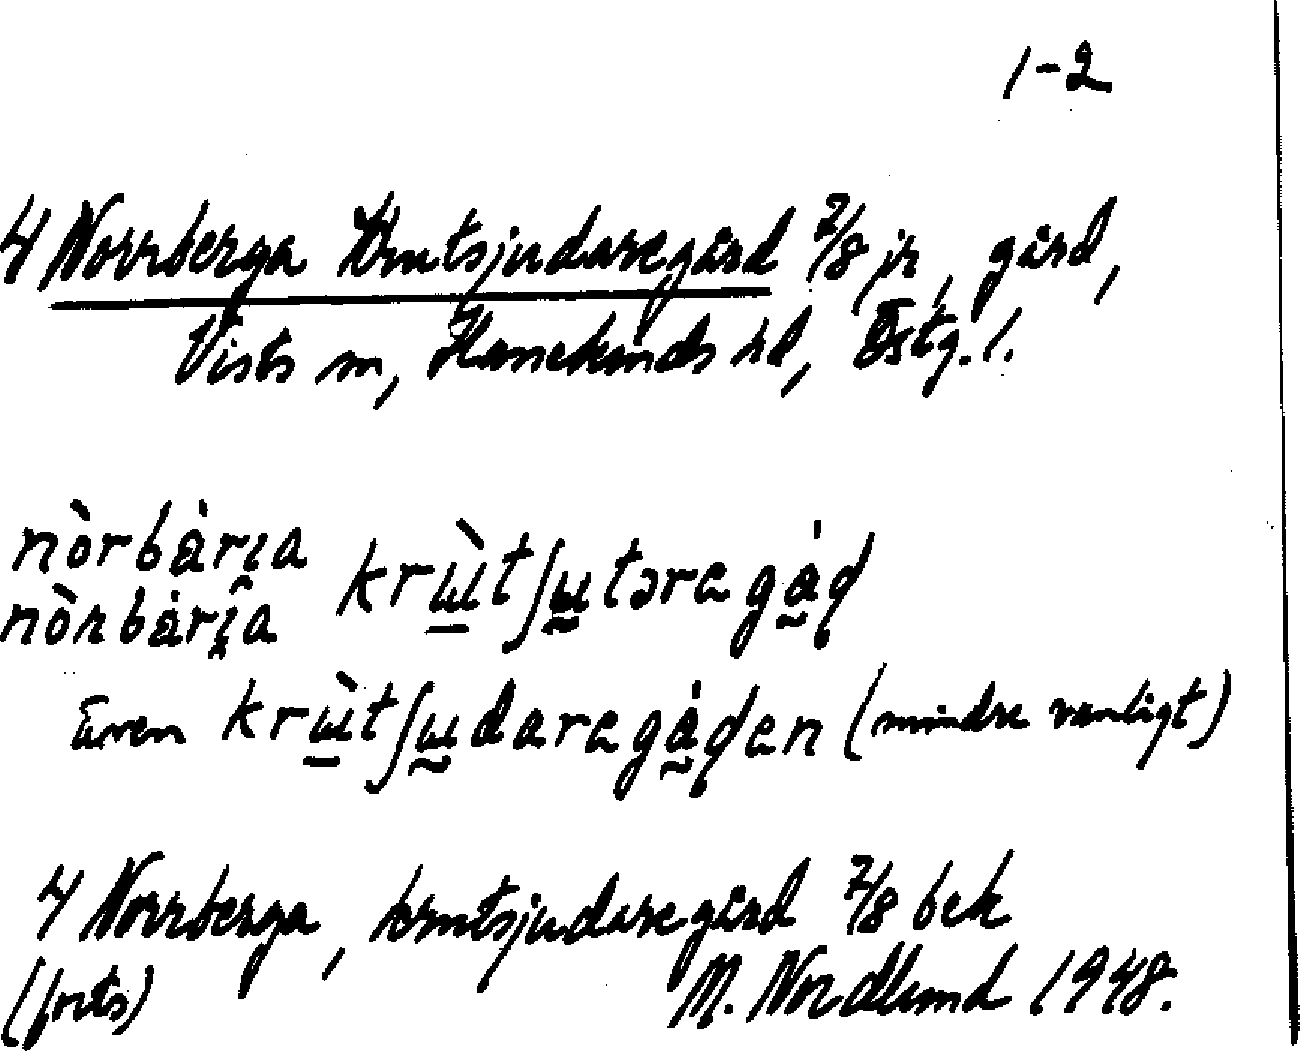 1-2
4 Norrberga Krutsjudaregård 7/8 jr, gård,
Vists sn, Hanekinds hd, Östg. l.
nòrbàrɩa krɯ̀tʃɯtəragå̀ḍ
nòrbàrɩa
även krɯ̀tʃɯdaragå̀ḍen (mindre vanligt)
4 Norrberga, krutsjudaregård 7/8 bek
(forts) M. Nordlund 1948.